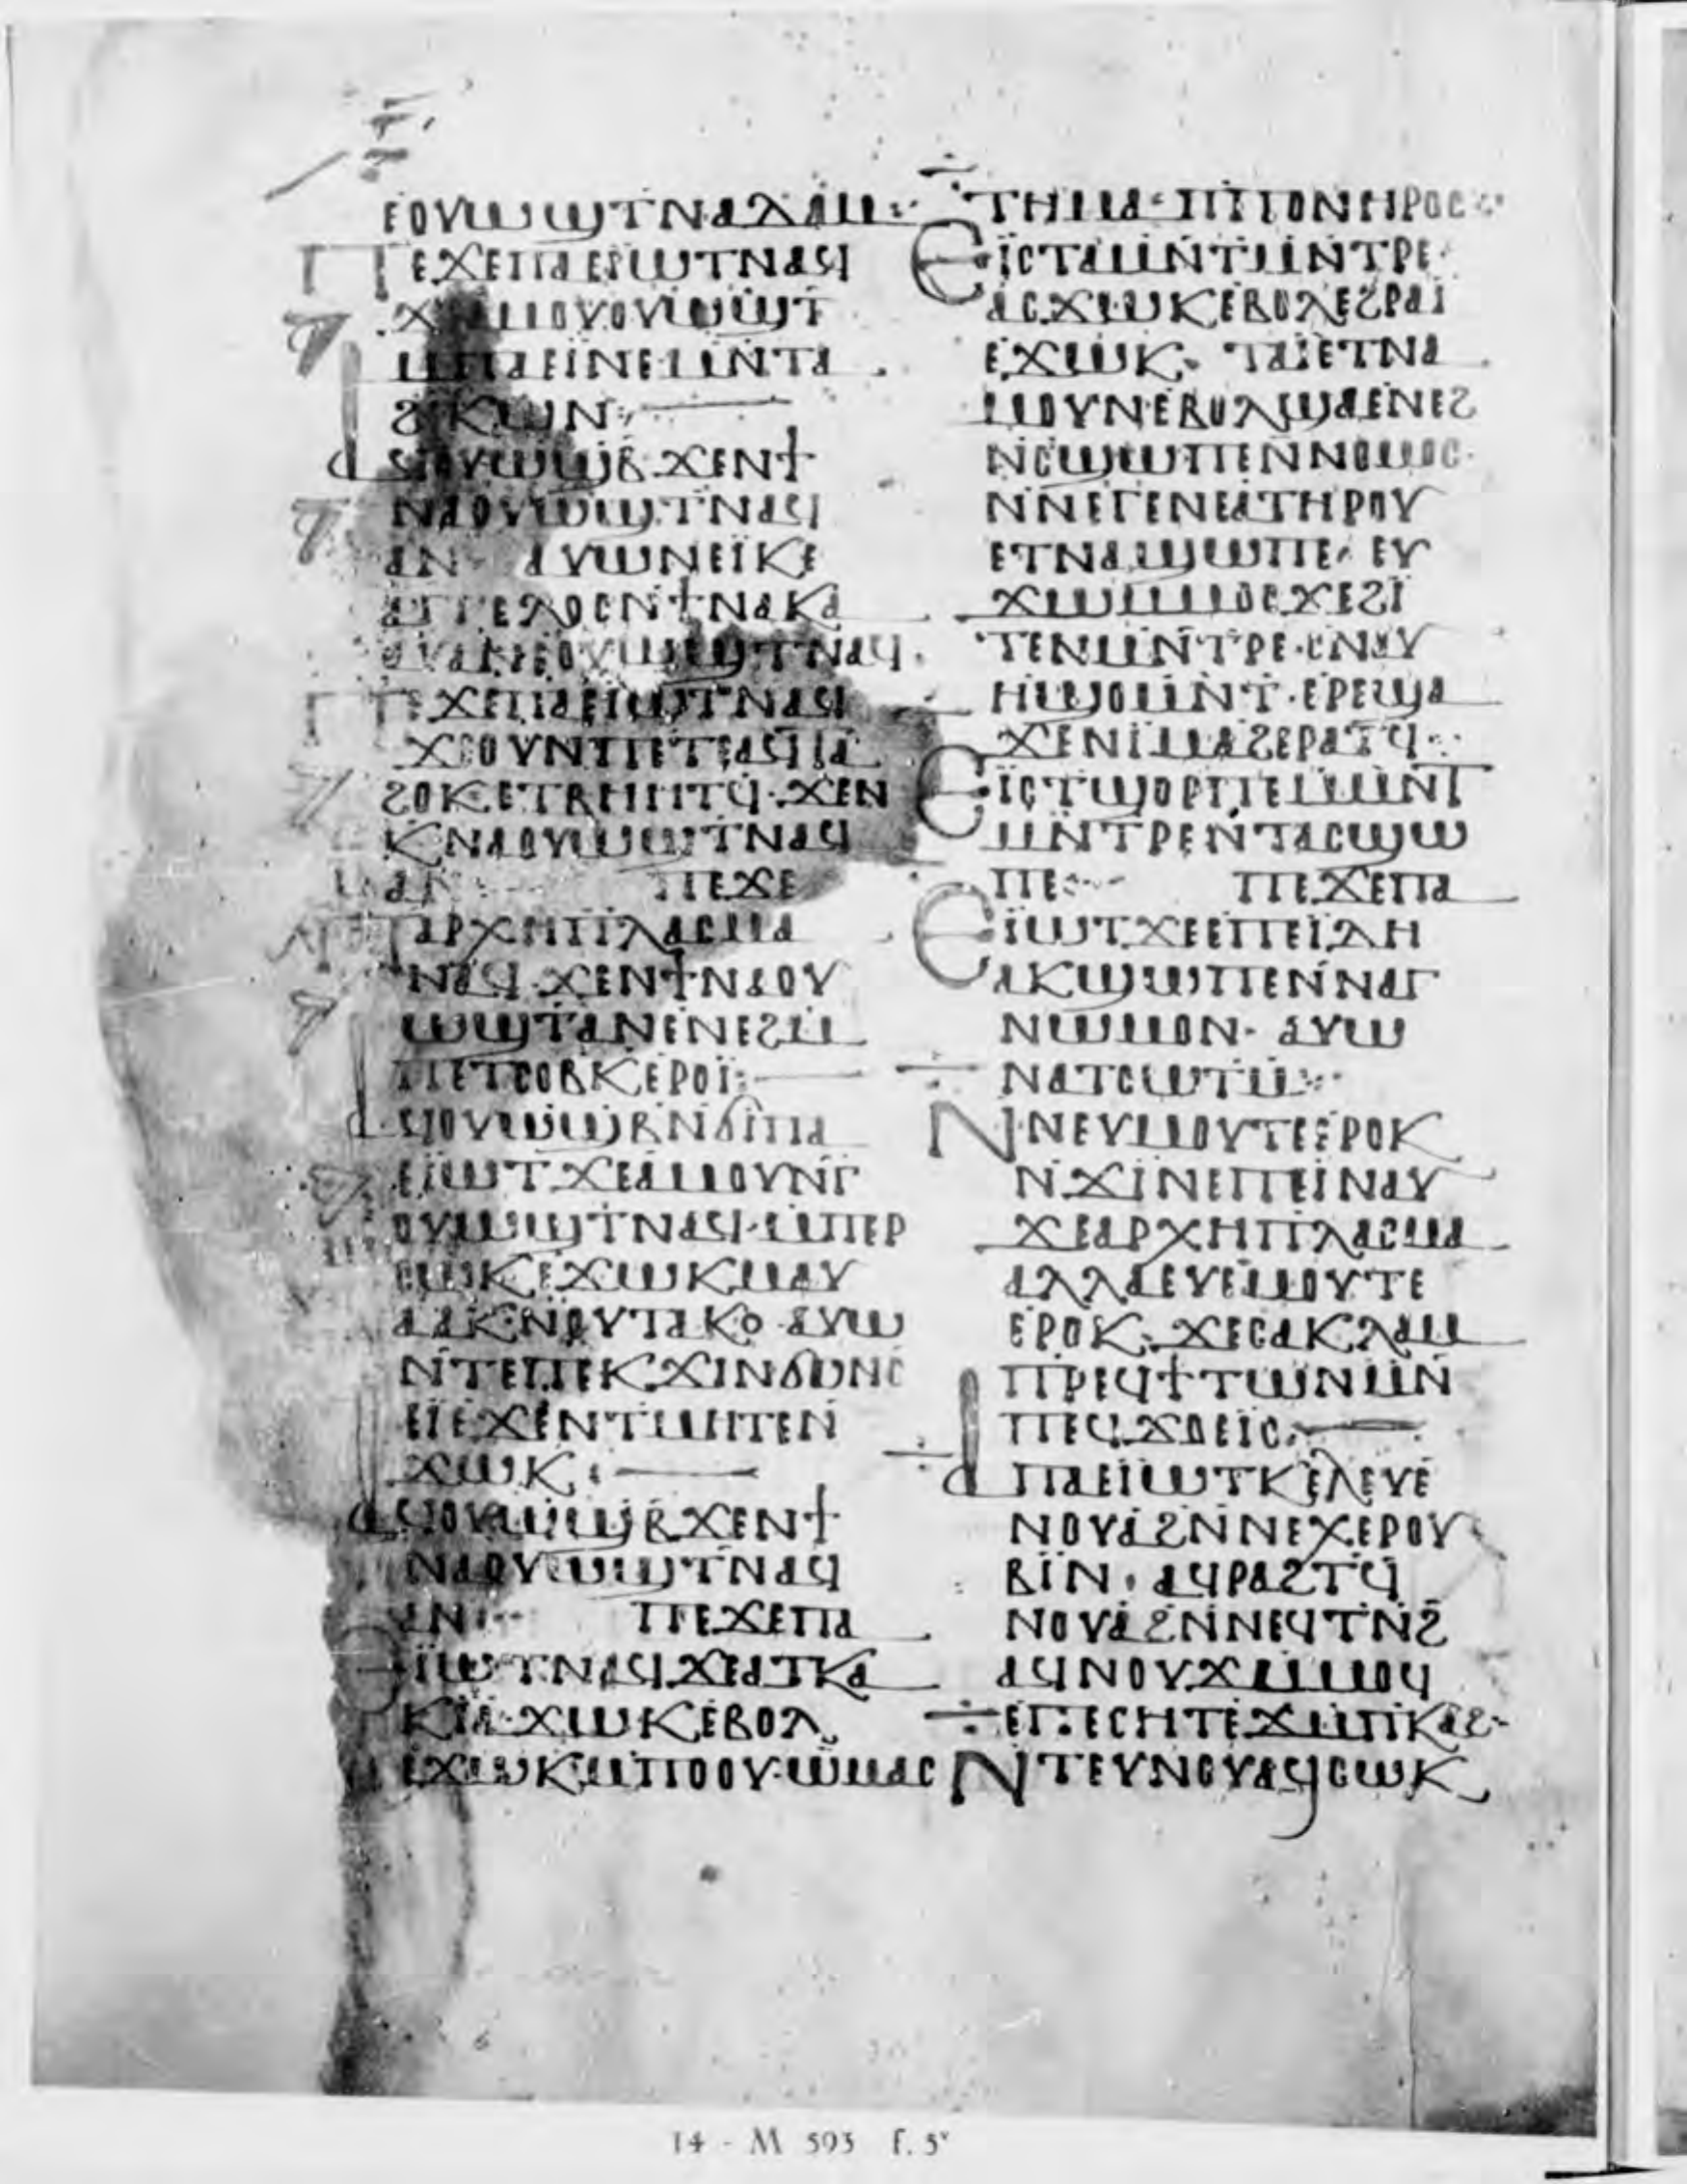 ⲉⲟⲩⲱϣⲧⲛⲁⲇⲁⲙ
ⲡⲉϫⲉⲡⲁⲉⲓⲱⲧⲛⲁϥ
ϫⲉⲁⲙⲟⲩⲟⲩⲱϣⲧ
ⲙⲡⲁⲉⲓⲛⲉⲙⲛⲧⲁ
ϩⲓⲕⲱⲛ
ⲁϥⲟⲩⲱϣⲃϫⲉⲛϯ
ⲛⲁⲟⲩⲱϣⲧⲛⲁϥ
ⲁⲛ ⲁⲩⲱⲛⲉⲓⲕⲉ
ⲁⲅⲅⲉⲗⲟⲥⲛϯⲛⲁⲕⲁ
ⲁⲩⲁⲛⲉⲟⲩⲱϣⲧⲛⲁϥ
ⲡⲉϫⲉⲡⲁⲉⲓⲱⲧⲛⲁϥ
ϫⲉⲟⲩⲛⲡⲉⲧ
ϩⲟⲕⲉⲧⲃⲏⲏⲧϥ·ϫⲉⲛ
ⲕⲛⲁⲟⲩⲱϣⲧⲛⲁϥ
ⲁⲛ ⲡⲉϫⲉ
ⲡⲁⲣⲭⲏⲡⲗⲁⲥⲙⲁ
ⲛⲁϥ·ϫⲉⲛϯⲛⲁⲟⲩ
ⲱϣⲧⲁⲛⲉⲛⲉϩⲙ
ⲡⲉⲧⲥⲟⲃⲕⲉⲣⲟⲓ̈
ⲁϥⲟⲩⲱϣⲃⲛϭⲓⲡⲁ
ⲉⲓⲱⲧϫⲉⲁⲙⲟⲩⲛⲅ
ⲟⲩⲱϣⲧⲛⲁϥ·ⲙⲡⲉⲣ
ⲥⲱⲕⲉϫⲱⲕⲙⲁⲩ
ⲁⲁⲕⲛⲟⲩⲧⲁⲕⲟ·ⲁⲩⲱ
ⲛⲧⲉⲡⲉⲕϫⲓⲛϭⲟⲛⲥ
ⲉⲓⲉϫⲉⲛⲧⲙⲏⲧⲉⲛ
ϫⲱⲕ
ⲁϥⲟⲩⲱϣⲃϫⲉⲛϯ
ⲛⲁⲟⲩⲱϣⲧⲛⲁϥ
ⲁⲛ ⲡⲉϫⲉⲡⲁ
ⲉⲓⲱⲧⲛⲁϥϫⲉⲁⲧⲕⲁ
ⲕⲓⲁ·ϫⲱⲕⲉⲃⲟⲗ
ⲉϫⲱⲕⲙⲡⲟⲟⲩ·ⲱⲙⲁⲥ
ⲧⲏⲙⲁ·ⲙⲡⲟⲛⲏⲣⲟⲥ
ⲉⲓⲥⲧⲁⲙⲛⲧⲙⲛⲧⲣⲉ
ⲁⲥϫⲱⲕⲉⲃⲟⲗⲉϩⲣⲁⲓ
ⲉϫⲱⲕ· ⲧⲁⲓ̈ⲉⲧⲛⲁ
ⲙⲟⲩⲛⲉⲃⲟⲗϣⲁⲉⲛⲉϩ
ⲛⲥϣⲱⲡⲉⲛⲛⲟⲙⲟⲥ·
ⲛⲛⲉⲅⲉⲛⲉⲁⲧⲏⲣⲟⲩ
ⲉⲧⲛⲁϣⲱⲡⲉ· ⲉⲩ
ϫⲱⲙⲙⲟⲥϫⲉϩⲓ
ⲧⲉⲛⲙⲛⲧⲣⲉ·ⲥⲛⲁⲩ
ⲏϣⲟⲙⲛⲧ·ⲉⲣⲉϣⲁ
ϫⲉⲛⲓⲙⲁϩⲉⲣⲁⲧϥ
ⲉⲓⲥⲧϣⲟⲣⲡⲉⲙⲙⲛⲧ
ⲙⲛⲧⲣⲉⲛⲧⲁⲥϣⲱ
ⲡⲉ ⲡⲉϫⲉⲡⲁ
ⲉⲓⲱⲧϫⲉⲉⲡⲉⲓⲇⲏ
ⲁⲕϣⲱⲡⲉⲛⲛⲁⲅ
ⲛⲱⲙⲟⲛ· ⲁⲩⲱ
ⲛⲁⲧⲥⲱⲧⲙ
ⲛⲛⲉⲩⲙⲟⲩⲧⲉⲉⲣⲟⲕ
ⲛϫⲓⲛⲉⲡⲉⲓⲛⲁⲩ
ϫⲉⲁⲣⲭⲏⲡⲗⲁⲥⲙⲁ
ⲁⲗⲗⲁⲉⲩⲉⲙⲟⲩⲧⲉ
ⲉⲣⲟⲕ·ϫⲉⲥⲁⲕⲗⲁⲙ
ⲡⲣⲉϥϯⲧⲱⲛⲙⲛ
ⲡⲉϥϫⲟⲉⲓⲥ
ⲁⲡⲁⲉⲓⲱⲧⲕⲉⲗⲉⲩⲉ
ⲛⲟⲩⲁϩⲛⲛⲉⲭⲉⲣⲟⲩ
ⲃⲓⲛ·ⲁϥⲣⲁϩⲧϥ
ⲛⲟⲩⲁϩⲛⲛⲉϥⲧⲛϩ
ⲁϥⲛⲟⲩϫⲙⲙⲟϥ
ⲉⲡⲉⲥⲏⲧⲉϫⲙⲡⲕⲁϩ
ⲛⲧⲉⲩⲛⲟⲩⲁϥⲥⲱⲕ
14 - M 593 f. 5ᵛ